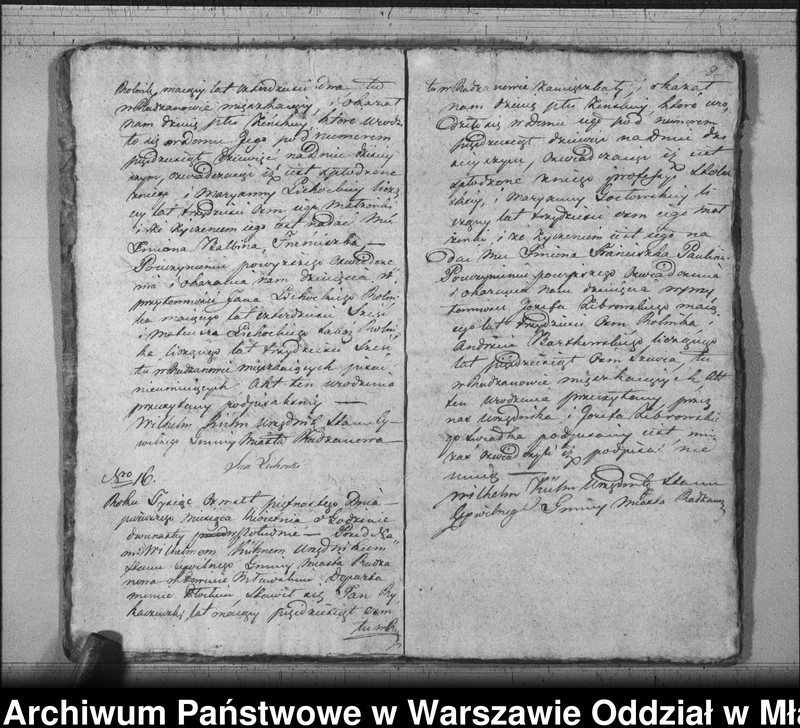 Rolnik, mający lat czterdzieści dwa tu
w Radzanowie mieszkający, i okazał
nam dziecię płci żeńskiej, które urodzi
ło się w domu jego pod numerem
pięćdziesiąt dziewięć na dniu dzisiej
szym, oświadczając iż jest spłodzone
z niego i Maryanny Lichockiey liczą
cey lat trzydzieści ośm, jego małżonki
i że życzeniem jego jest nadać mu
Jmiona Balbina, Franciszka,
Po uczynieniu powyższego oświadcze
nia i okazaniu nam dziecięcia, w
przytomności Jana Lichockiego Rolni
ka mającego lat czterdzieści sześć
i Mateusza Lichockiego także Rolni
ka liczącego lat trzydzieści sześć
tu w Radzanowie mieszkających pisać
nieumiejących. Akt ten urodzenia
przeczytany podpisaliśmy
Wilhelm Kühn Urzędnik Stanu Cy
wilnego Gminy Miasta Radzanowa
Jan Lichocki
Nro 16.
Roku Tysiąc Ośmset piętnastego Dnia
pierwszego miesiąca Kwietnia o godzinie
dwunastey południe — Przed Na
mi Wilhelmem Kühnem Urzędnikiem
Stanu Cywilnego Gminy Miasta Radza
nowa w Powiecie Mławskim Departa
mencie Płockim, stawił się Jan
lat mający pięćdziesiąt ośm
tu w Ra
9
tu w Radzanowie zamieszkały, i okazał
nam dziecię płci żeńskiej, które uro
dziło się w domu jego pod numerem
pięćdziesiąt dziewięć na dniu dzi
siejszym, oświadczając iż jest
spłodzone z niego
i Maryanny li
czącey lat trzydzieści ośm jego mał
żonki, i że życzeniem jest jego na
dać mu Jmiona Franciszka Paulina
Po uczynieniu powyższego oświadczenia
i okazaniu nam dziecięcia w przy
tomności Józefa Żebrowskiego mają
cego lat trzydzieści ośm Rolnika i
Andrzeia liczącego
lat pięćdziesiąt ośm Szewca, tu
w Radzanowie mieszkających Akt
ten urodzenia przeczytany, przez
nas Urzędnika i Józefa Żebrowskie
go świadka podpisany jest,
oświadczyli iż podpisać nie
umieją — Wilhelm Kühn Urzędnik Stanu
Cywilnego Gminy Miasta Radzanowa
Archiwum Państwowe w Warszawie Oddział w Mła